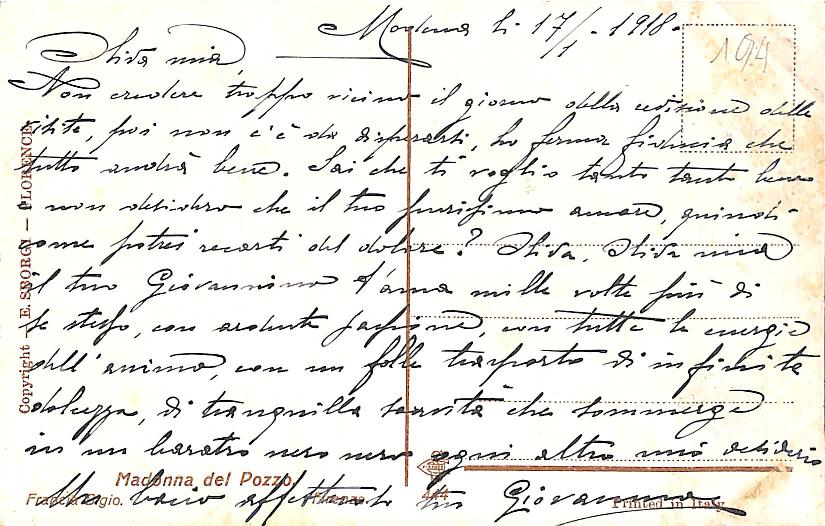 Modena li 17/1 - 1918 -
194
Ilda mia,
Non credere troppo vicino il giorno della cessione delle
visite, poi non c'è da disperarti, ho ferma fiducia che
tutto andrà bene. Sai che ti voglio tanto tanto bene
e non desidero che il tuo purissimo amore, quindi
come potrei recarti del dolore? Ilda, Ilda mia
il tuo Giovannino t'ama mille volte più di
se stesso, con ardente passione, con tutte le energie
dell'anima, con un folle trasporto di infinita
dolcezza, di tranquilla soavità che sommerge
in un baratro nero nero ogni altro mio desiderio
Un bacio affettuoso tuo Giovannino
Copyright — E. SBORGI — FLORENCE
Madonna del Pozzo.
Franciabigio. Firenze.
444
Printed in Italy